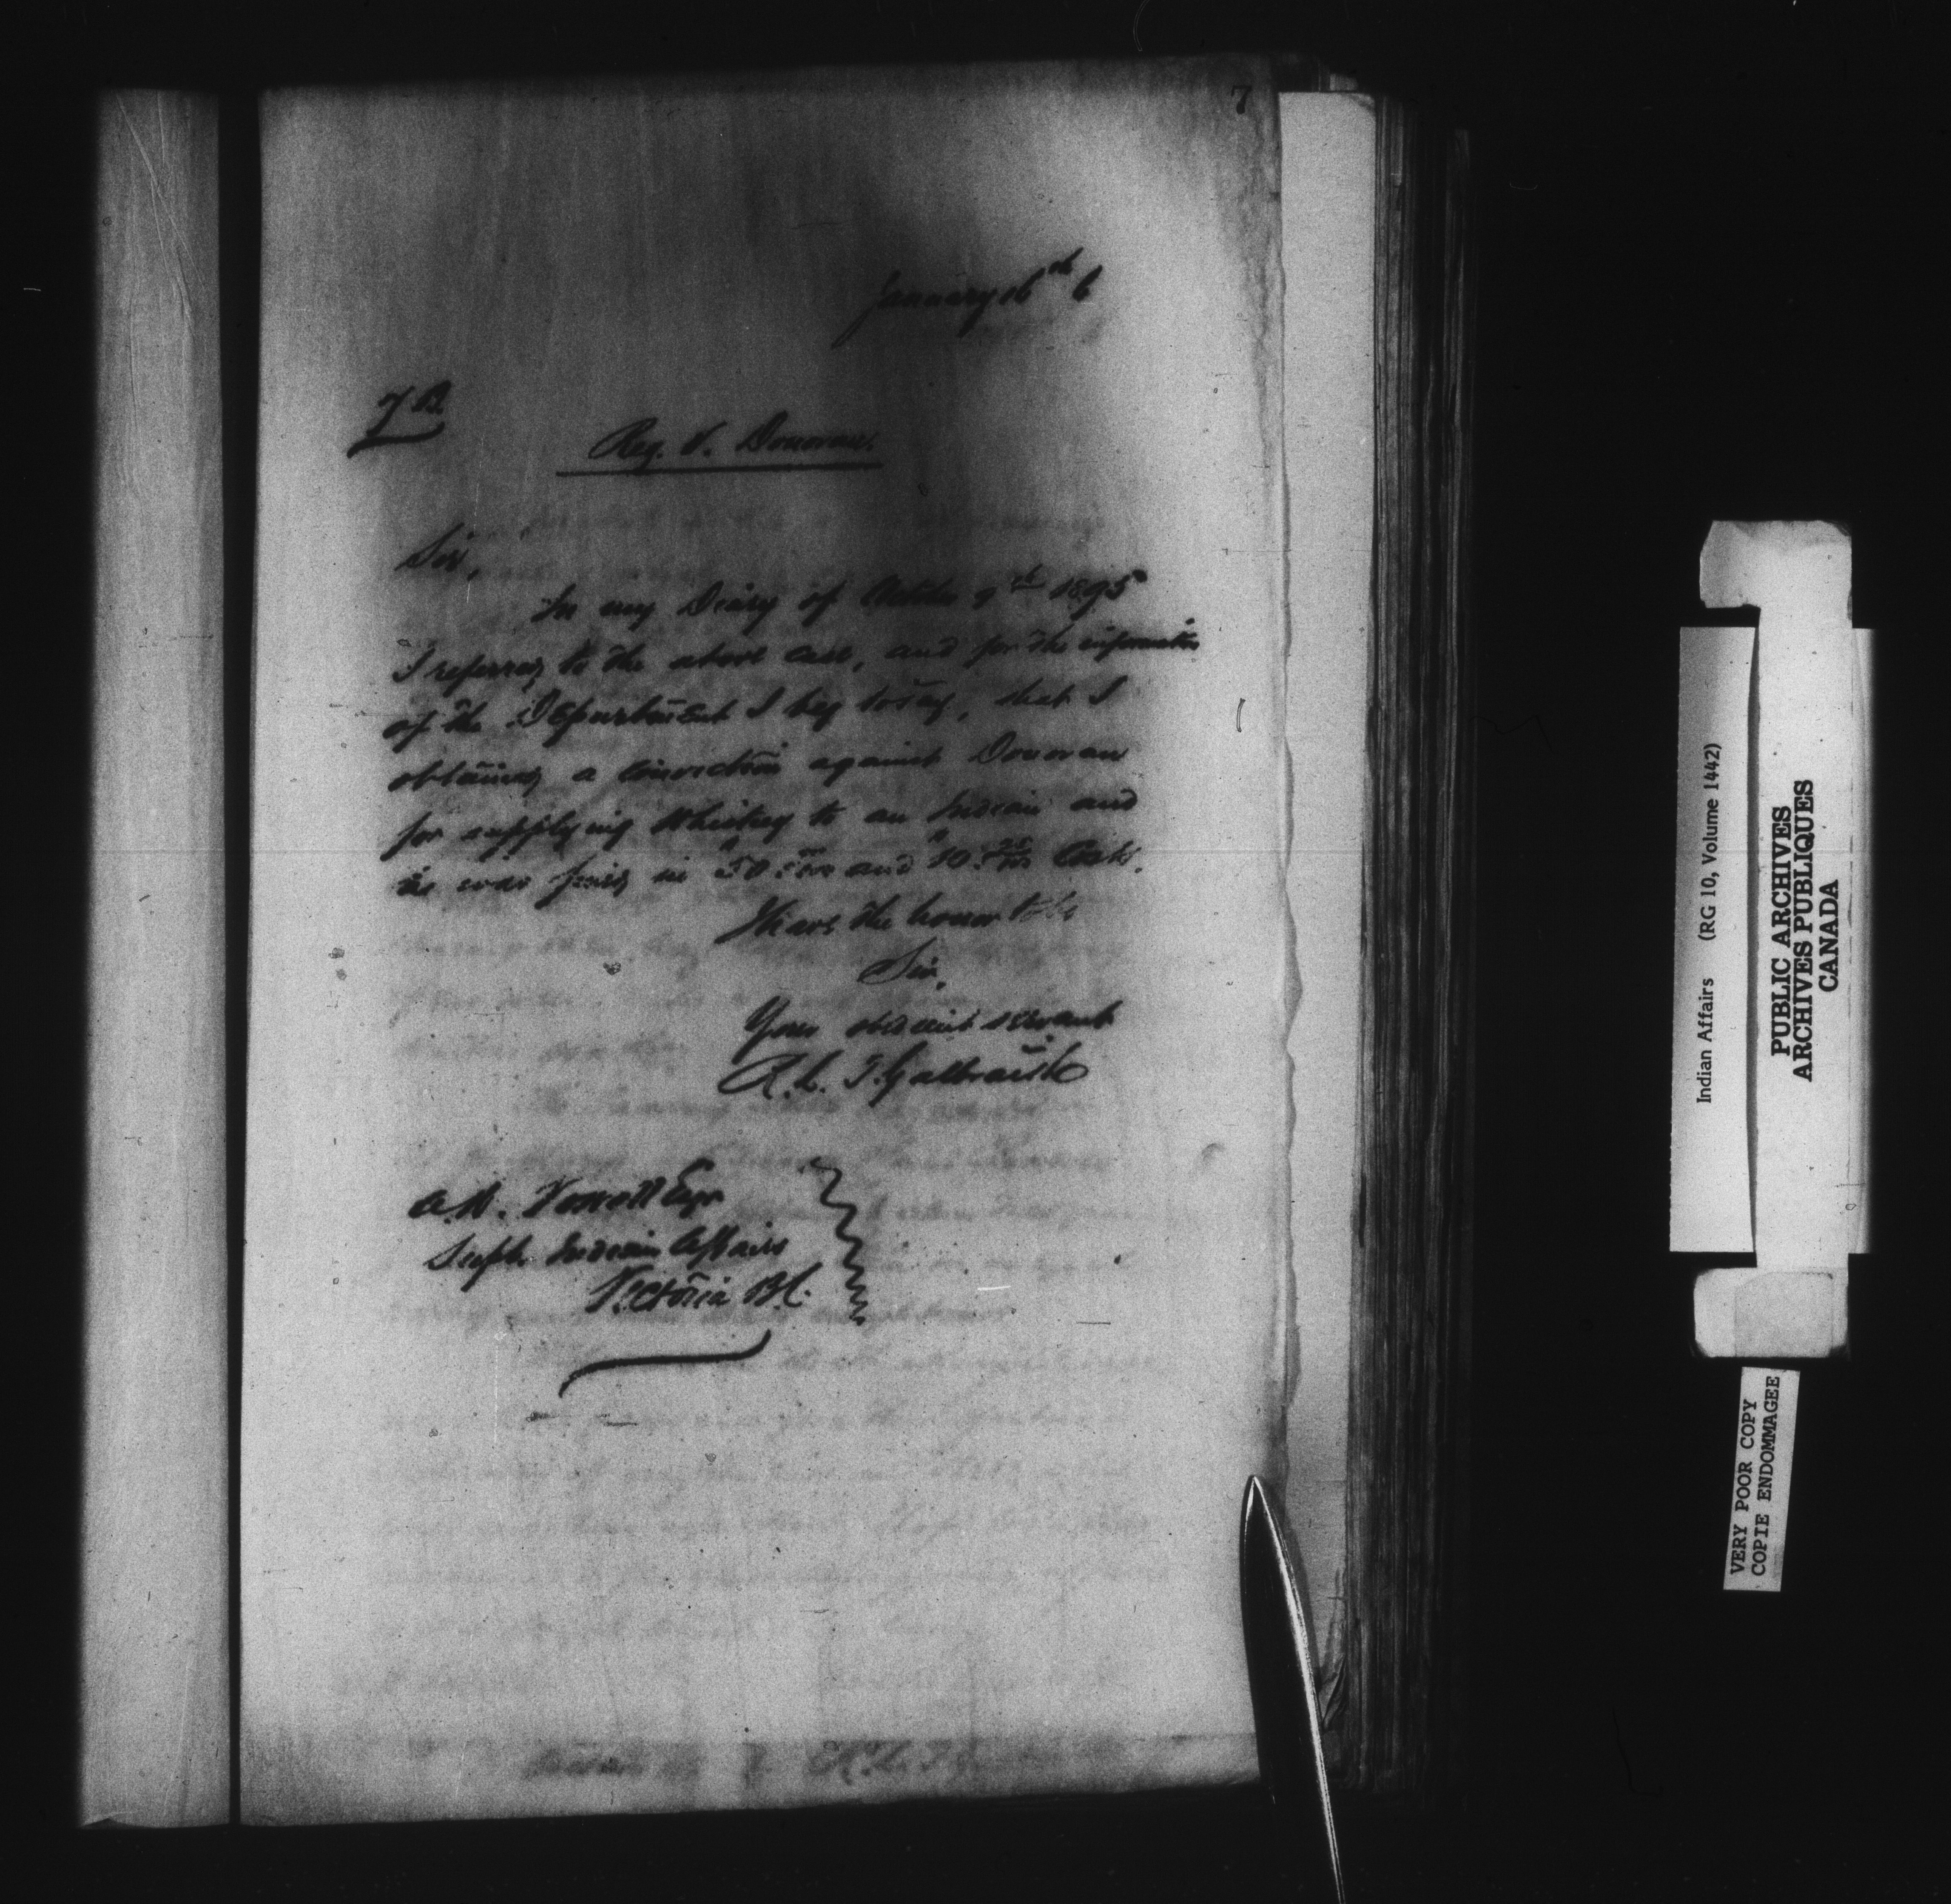 7
January 16th 6
7 B.
Reg. V. Donovan.
Sir,
In my Diary of October 9th 1895
I referred to the above case, and for the information
of the Department I beg to say, that I
obtained a conviction against Donovan
for supplying Whiskey to an Indian and
he was fined in $50 00/100 and $10 Costs.
I have the honor to be
Sir,
Your obedient servant
R. L. T. Galbraith
A. W. Vowell Esqr
Supt. Indian Affairs
Victoria B.C.
Indian Affairs (RG 10, Volume 1442)
PUBLIC ARCHIVES
ARCHIVES PUBLIQUES
CANADA
VERY POOR COPY
COPIE ENDOMMAGEE